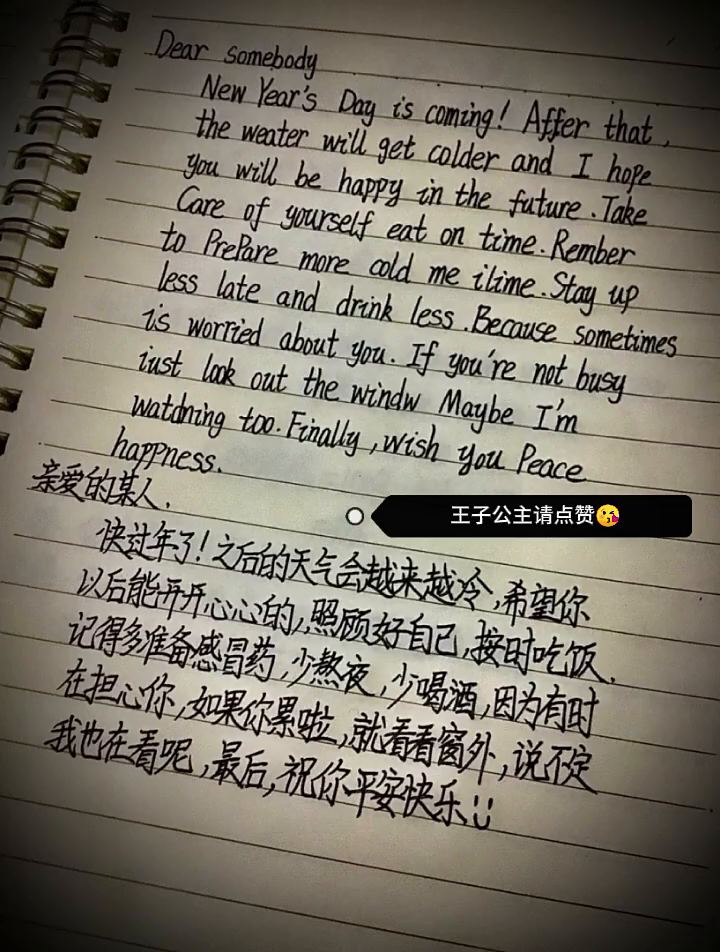 Dear somebody
New Year's Day is coming! Affer that,
the weater will get colder and I hope
you will be happy in the future.Take
Care of yourself eat on time.Rember
to PrePare more cold me ilime.Stay up
less late and drink less.Because sometimes
is worried about you. If you're not busy
iust look out the windw Maybe I'm
watdning too.Finally,wish you Peace
happness.
亲爱的某人.
王子公主请点赞😘
快过年了!之后的天气会越来越冷,希望你
以后能开开心心的,照顾好自己,按时吃饭.
记得多准备感冒药,少熬夜,少喝酒,因为有时
在担心你,如果你累啦,就看看窗外,说不定
我也在看呢,最后,祝你平安快乐!!